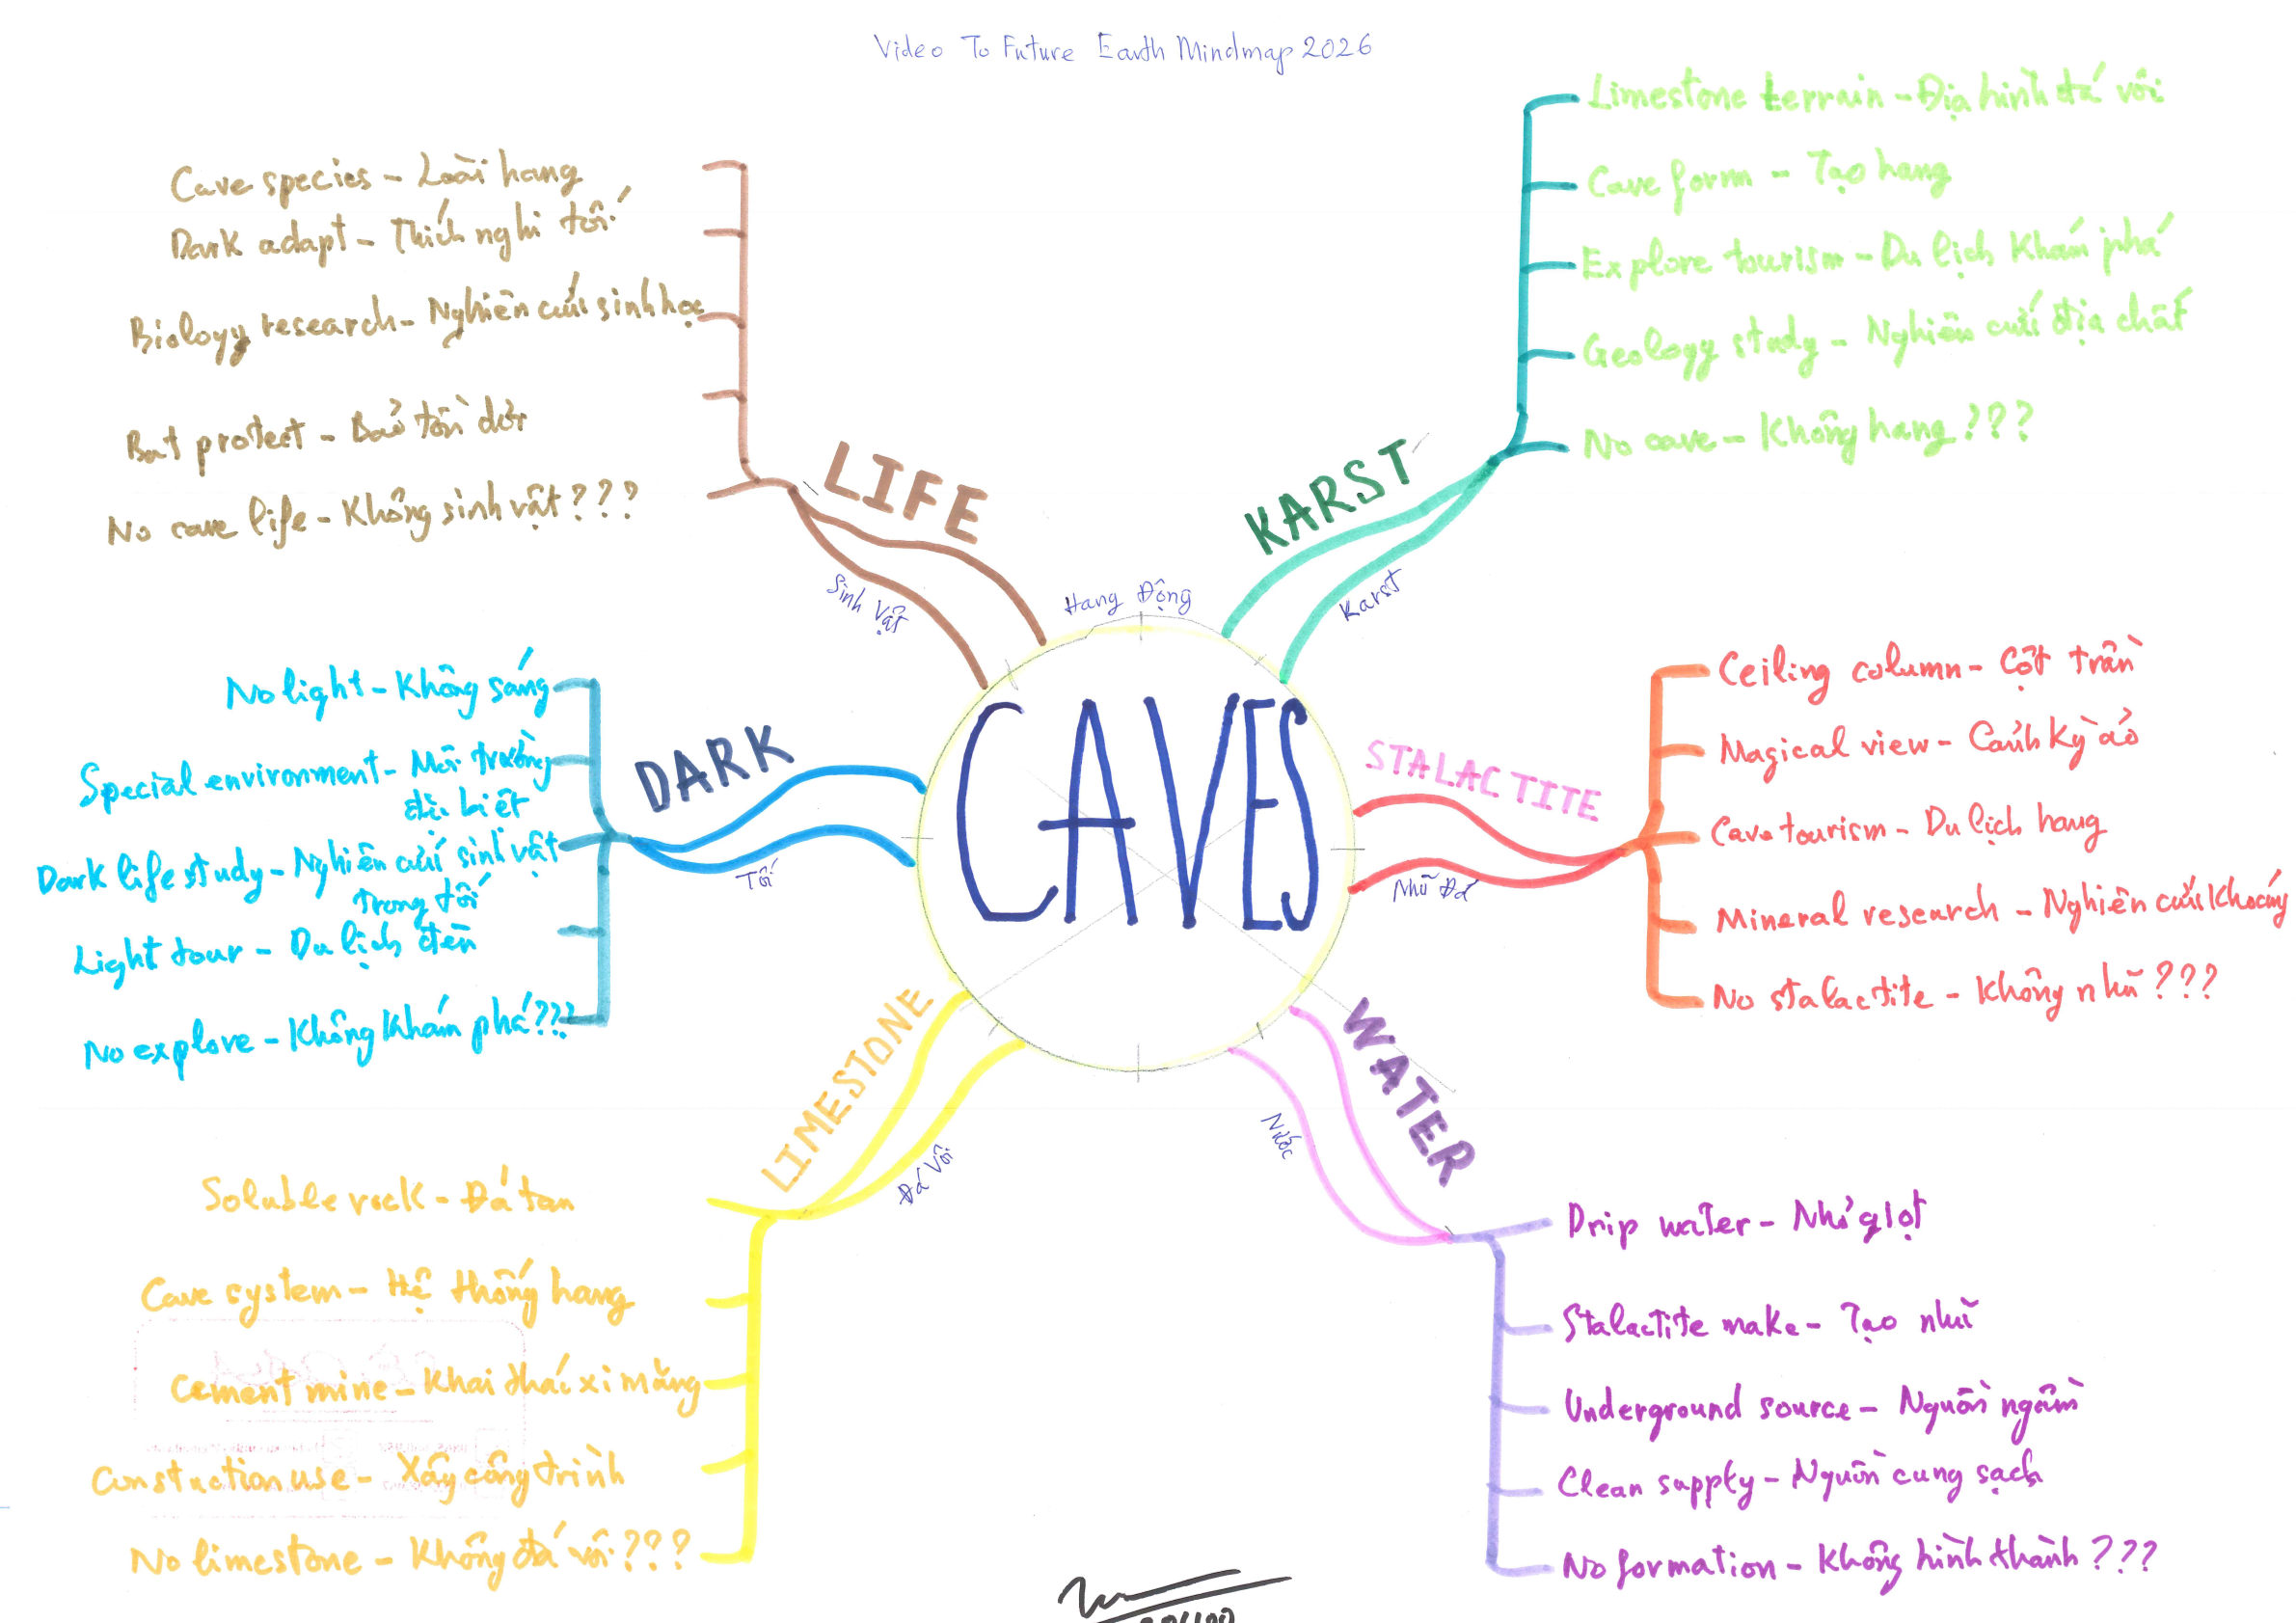 Video To Future Earth Mindmap 2026
CAVES
Hang Động
KARST
Karst
Limestone terrain - Địa hình đá vôi
Cave form - Tạo hang
Explore tourism - Du lịch Khám phá
Geology study - Nghiên cứu địa chất
No cave - Không hang???
STALACTITE
Nhũ Đá
Ceiling column - Cột trần
Magical view - Cảnh kỳ ảo
Cave tourism - Du lịch hang
Mineral research - Nghiên cứu khoáng
No stalactite - Không nhũ???
WATER
Nước
Drip water - Nhỏ giọt
Stalactite make - Tạo nhũ
Underground source - Nguồn ngầm
Clean supply - Nguồn cung sạch
No formation - Không hình thành???
LIMESTONE
Đá Vôi
Soluble rock - Đá tan
Cave system - Hệ thống hang
Cement mine - Khai thác xi măng
Constuction use - Xây công trình
No limestone - Không đá vôi???
DARK
Tối
No light - Không sáng
Special environment - Môi trường
đặc biệt
Dark life study - Nghiên cứu sinh vật
trong tối
Light tour - Du lịch đèn
No explore - Không khám phá???
LIFE
Sinh Vật
Cave species - Loài hang
Dark adapt - Thích nghi tối
Biology research - Nghiên cứu sinh học
Bat protect - Bảo tồn dơi
No cave life - Không sinh vật???